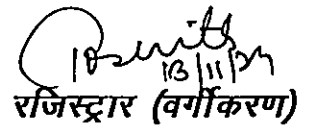 13/11/24
रजिस्ट्रार (वर्गीकरण)